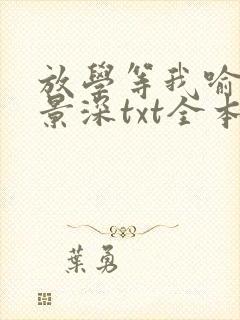 放學等我喻
景深txt全本
葉勇